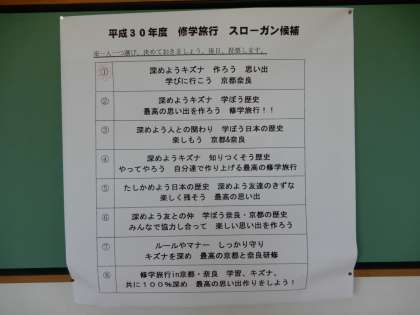 平成３０年度　修学旅行　スローガン候補
一人一つ選び、決めておきましょう。後日、投票します。
① 深めようキズナ　作ろう　思い出
学びに行こう　京都奈良
② 深めようキズナ　学ぼう歴史
最高の思い出を作ろう　修学旅行！！
③ 深めよう人との関わり　学ぼう日本の歴史
楽しもう　京都&奈良
④ 深めようキズナ　知りつくそう歴史
やってやろう　自分達で作り上げる最高の修学旅行
⑤ たしかめよう日本の歴史　深めよう友達のきずな
楽しく残そう　最高の思い出
⑥ 深めよう友との仲　学ぼう奈良・京都の歴史
みんなで協力し合って　楽しい思い出を作ろう
⑦ ルールやマナー　しっかり守り
キズナを深め　最高の京都と奈良研修
⑧ 修学旅行in京都・奈良　学習、キズナ、
共に１００％深め　最高の思い出作りをしよう！